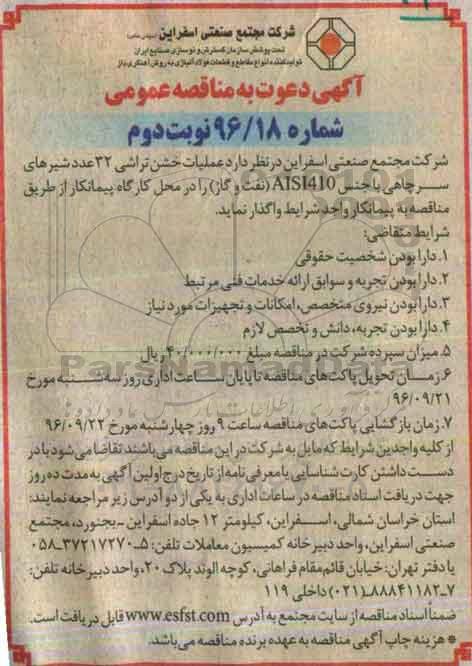 شرکت مجتمع صنعتی اسفراین (سهامی عام)
تحت پوشش سازمان گسترش و نوسازی صنایع ایران
تولید کننده انواع مقاطع و قطعات فولاد آلیاژی به روش آهنگری باز
آگهی دعوت به مناقصه عمومی
شماره ۹۶/۱۸ نوبت دوم
شرکت مجتمع صنعتی اسفراین در نظر دارد عملیات خشن تراشی ۳۲ عدد شیرهای
سرچاهی با جنس AISI410 (نفت و گاز) را در محل کارگاه پیمانکار از طریق
مناقصه به پیمانکار واجد شرایط واگذار نماید.
شرایط متقاضی:
۱. دارا بودن شخصیت حقوقی
۲. دارا بودن تجربه و سوابق ارائه خدمات فنی مرتبط
۳. دارا بودن نیروی متخصص، امکانات و تجهیزات مورد نیاز
۴. دارا بودن تجربه، دانش و تخصص لازم
۵. میزان سپرده شرکت در مناقصه مبلغ ۴۰/۰۰۰/۰۰۰ ریال
۶. زمان تحویل پاکت‌های مناقصه تا پایان ساعت اداری روز سه‌شنبه مورخ
۹۶/۰۹/۲۱
۷. زمان بازگشایی پاکت‌های مناقصه ساعت ۹ روز چهارشنبه مورخ ۹۶/۰۹/۲۲
از کلیه واجدین شرایط که مایل به شرکت در این مناقصه می‌باشند تقاضا می‌شود با در
دست داشتن کارت شناسایی یا معرفی‌نامه از تاریخ درج اولین آگهی به مدت ده روز
جهت دریافت اسناد مناقصه در ساعات اداری به یکی از دو آدرس زیر مراجعه نمایند:
استان خراسان شمالی، اسفراین، کیلومتر ۱۲ جاده اسفراین -بجنورد، مجتمع
صنعتی اسفراین، واحد دبیرخانه کمیسیون معاملات تلفن: ۵-۳۷۲۱۷۲۷۰-۰۵۸
یا دفتر تهران: خیابان قائم‌مقام فراهانی، کوچه الوند پلاک ۲۰، واحد دبیرخانه تلفن:
۷-۸۸۸۴۱۱۸۲(۰۲۱) داخلی ۱۱۹
ضمناً اسناد مناقصه از سایت مجتمع به آدرس www.esfst.com قابل دریافت است.
* هزینه چاپ آگهی مناقصه به عهده برنده مناقصه می‌باشد.